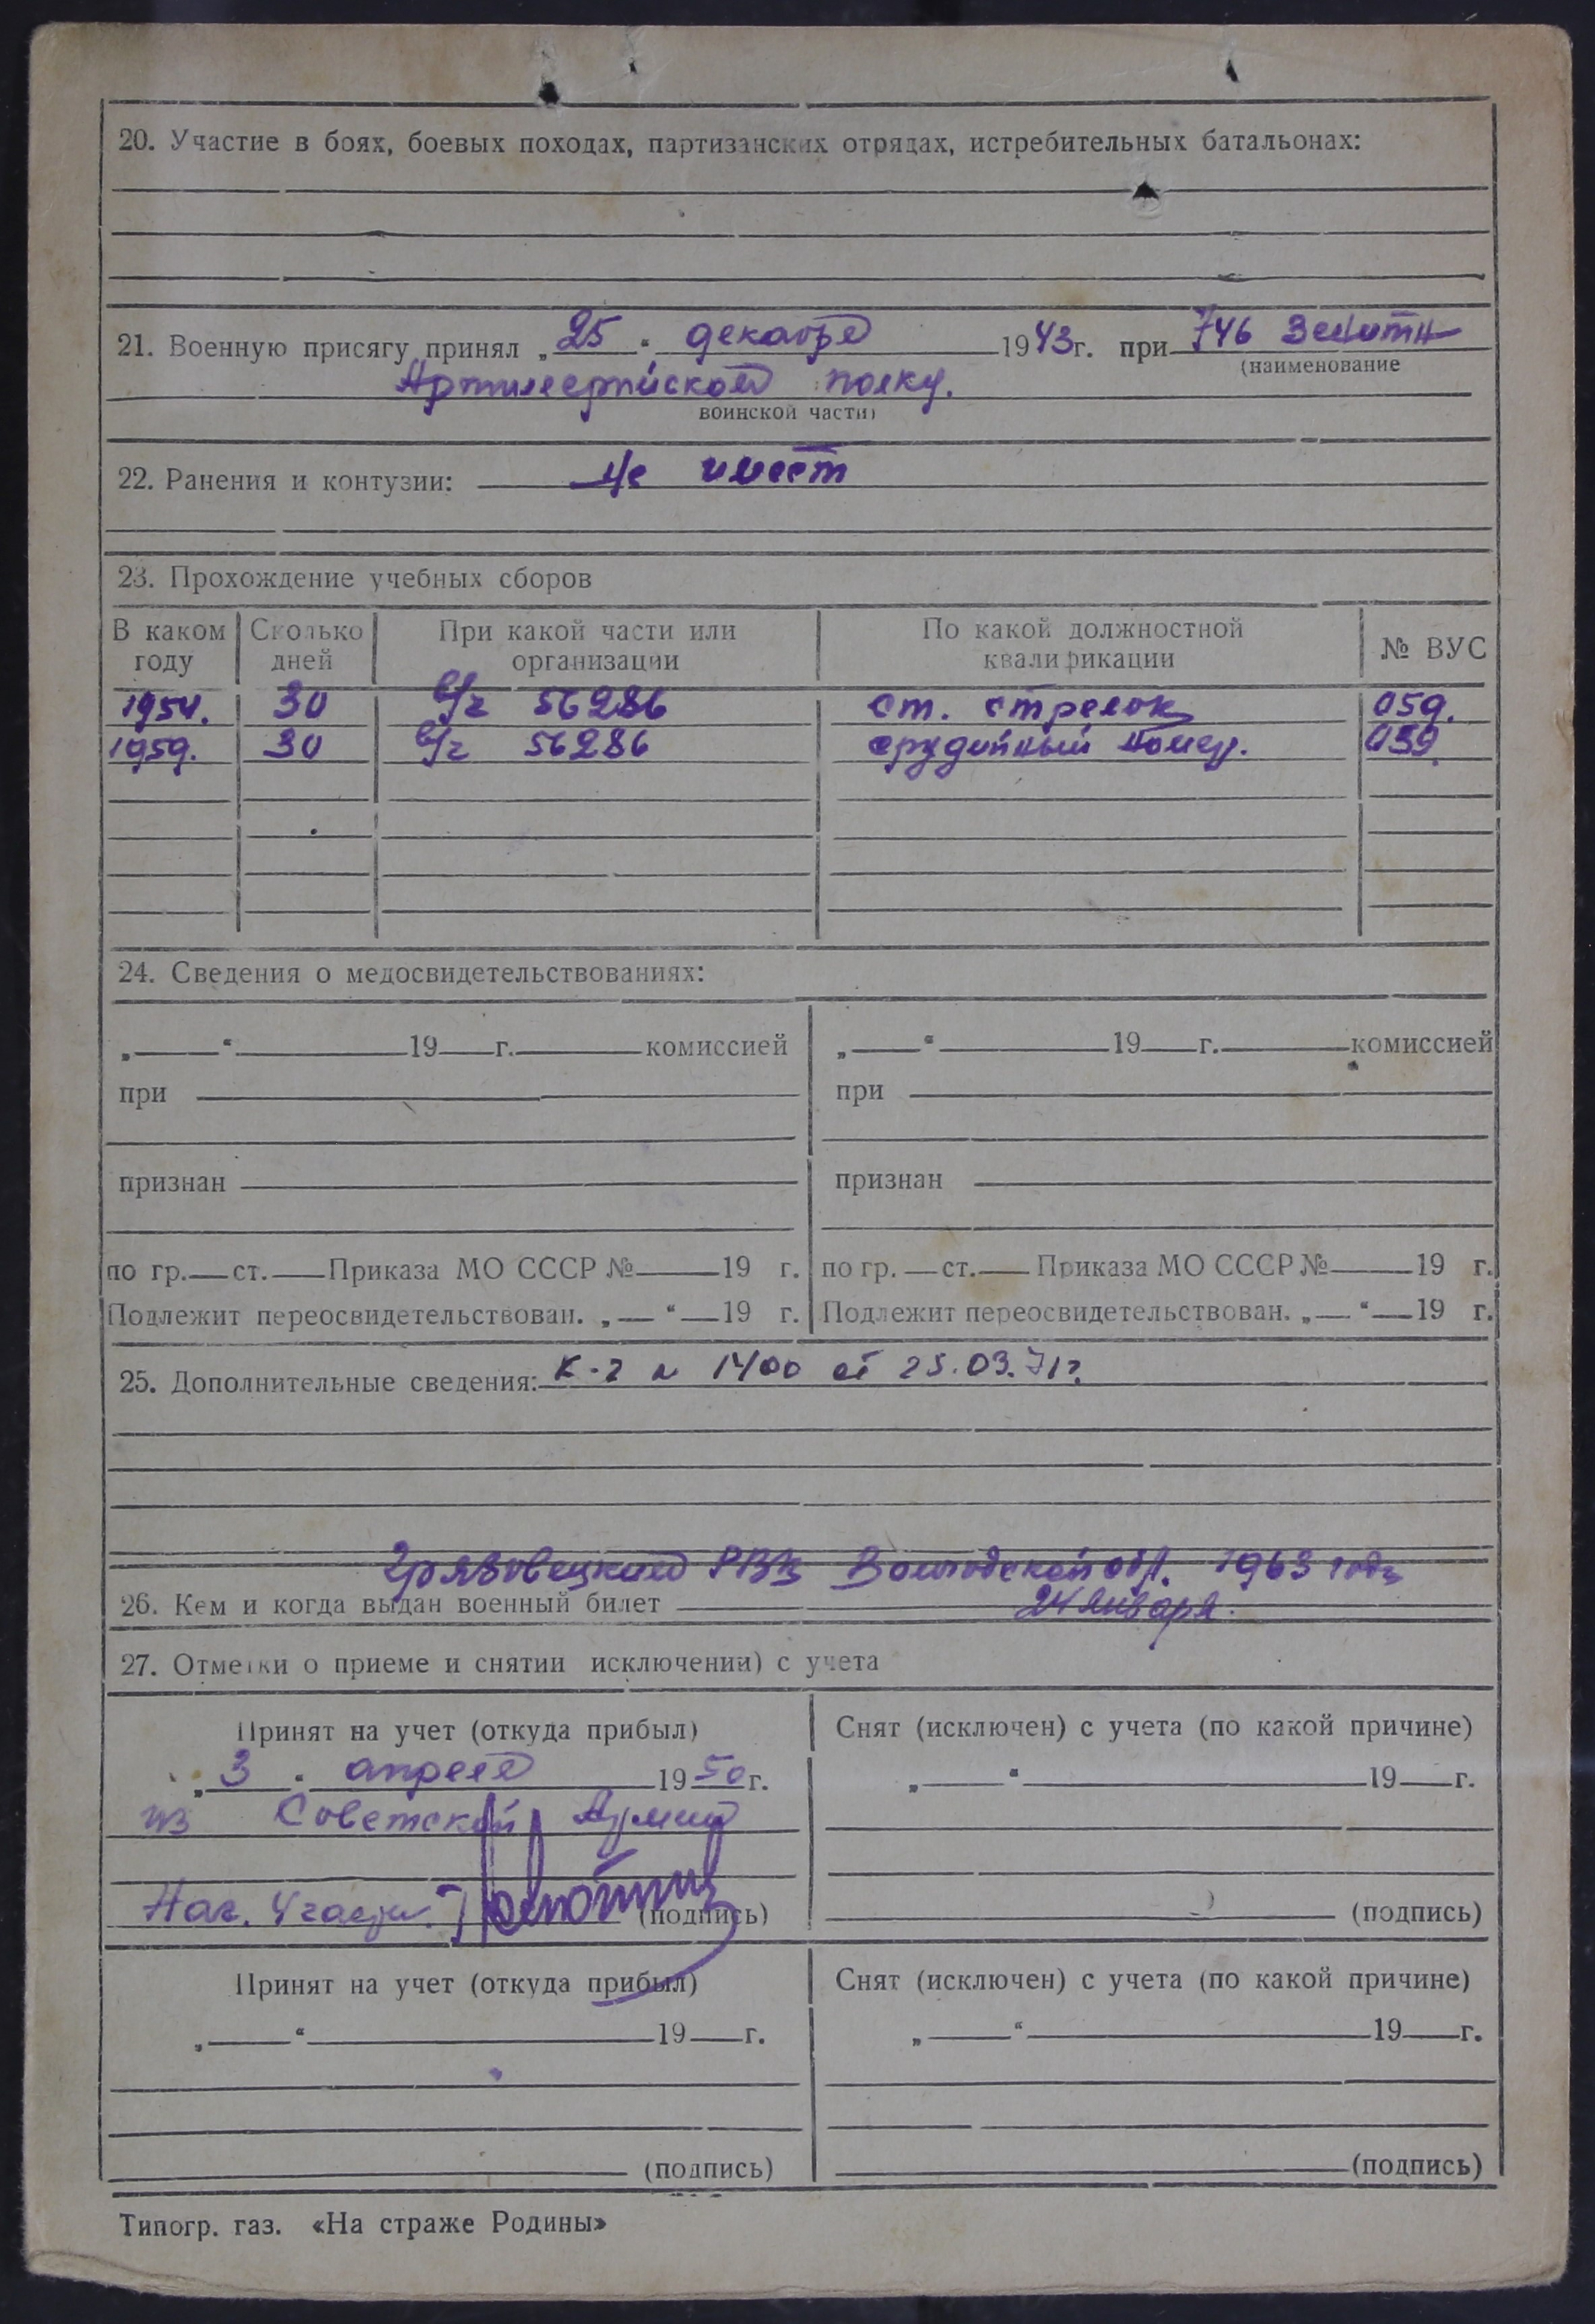 20. Участие в боях, боевых походах, партизанских отрядах, истребительных батальонах:
21. Военную присягу принял „25“ декабря 1943г. при 746 Зенитн
(наименование
Артилерийском полку.
воинской части)
22. Ранения и контузии: Не имеет
23. Прохождение учебных сборов
В каком году Сколько дней При какой части или организации По какой должностной квалификации № ВУС
1954. 30 в/ч 56286 ст. стрелок 059.
1959. 30 в/ч 56286 орудийный номер. 039.
24. Сведения о медосвидетельствованиях:
„ “ 19 г. комиссией „ “ 19 г. комиссией
при при
признан признан
по гр. ст. Приказа МО СССР № 19 г. по гр. ст. Приказа МО СССР № 19 г.
Подлежит переосвидетельствован. „ “ 19 г. Подлежит переосвидетельствован. „ “ 19 г.
25. Дополнительные сведения: К-2 № 1400 от 25.03.71г.
Грязовецким РВК Вологодской обл. 1963 года
26. Кем и когда выдан военный билет 24 января.
27. Отметки о приеме и снятии исключении) с учета
Принят на учет (откуда прибыл) Снят (исключен) с учета (по какой причине)
„3“ апреля 1950г. „ “ 19 г.
из Советской Армии
Нач. 4 части. (подпись) (подпись)
Принят на учет (откуда прибыл) Снят (исключен) с учета (по какой причине)
„ “ 19 г. „ “ 19 г.
(подпись) (подпись)
Типогр. газ. «На страже Родины»